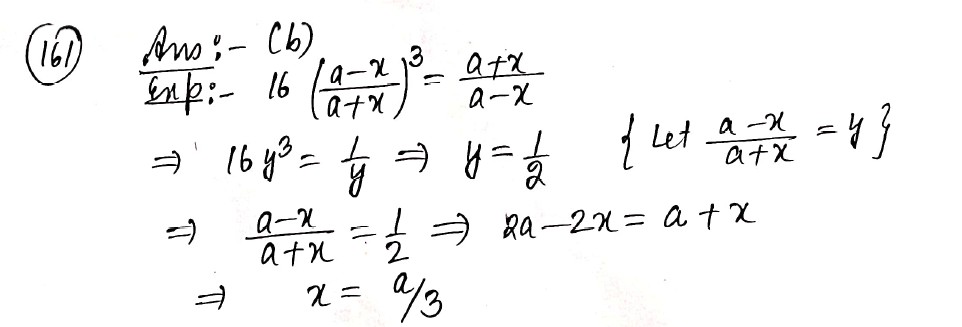 (161) Ans :- (b)
Exp:- 16 ((a-x)/(a+x))³ = (a+x)/(a-x)
⇒ 16y³ = 1/y ⇒ y = 1/2 { Let (a-x)/(a+x) = y }
⇒ (a-x)/(a+x) = 1/2 ⇒ 2a-2x = a+x
⇒ x = a/3